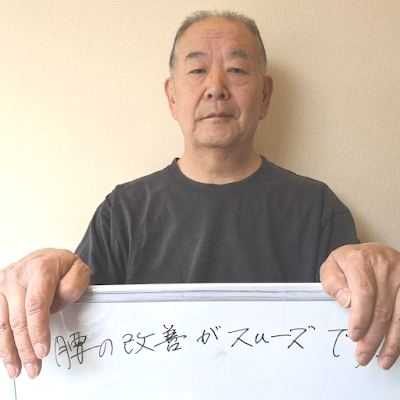 腰の改善がスムーズで